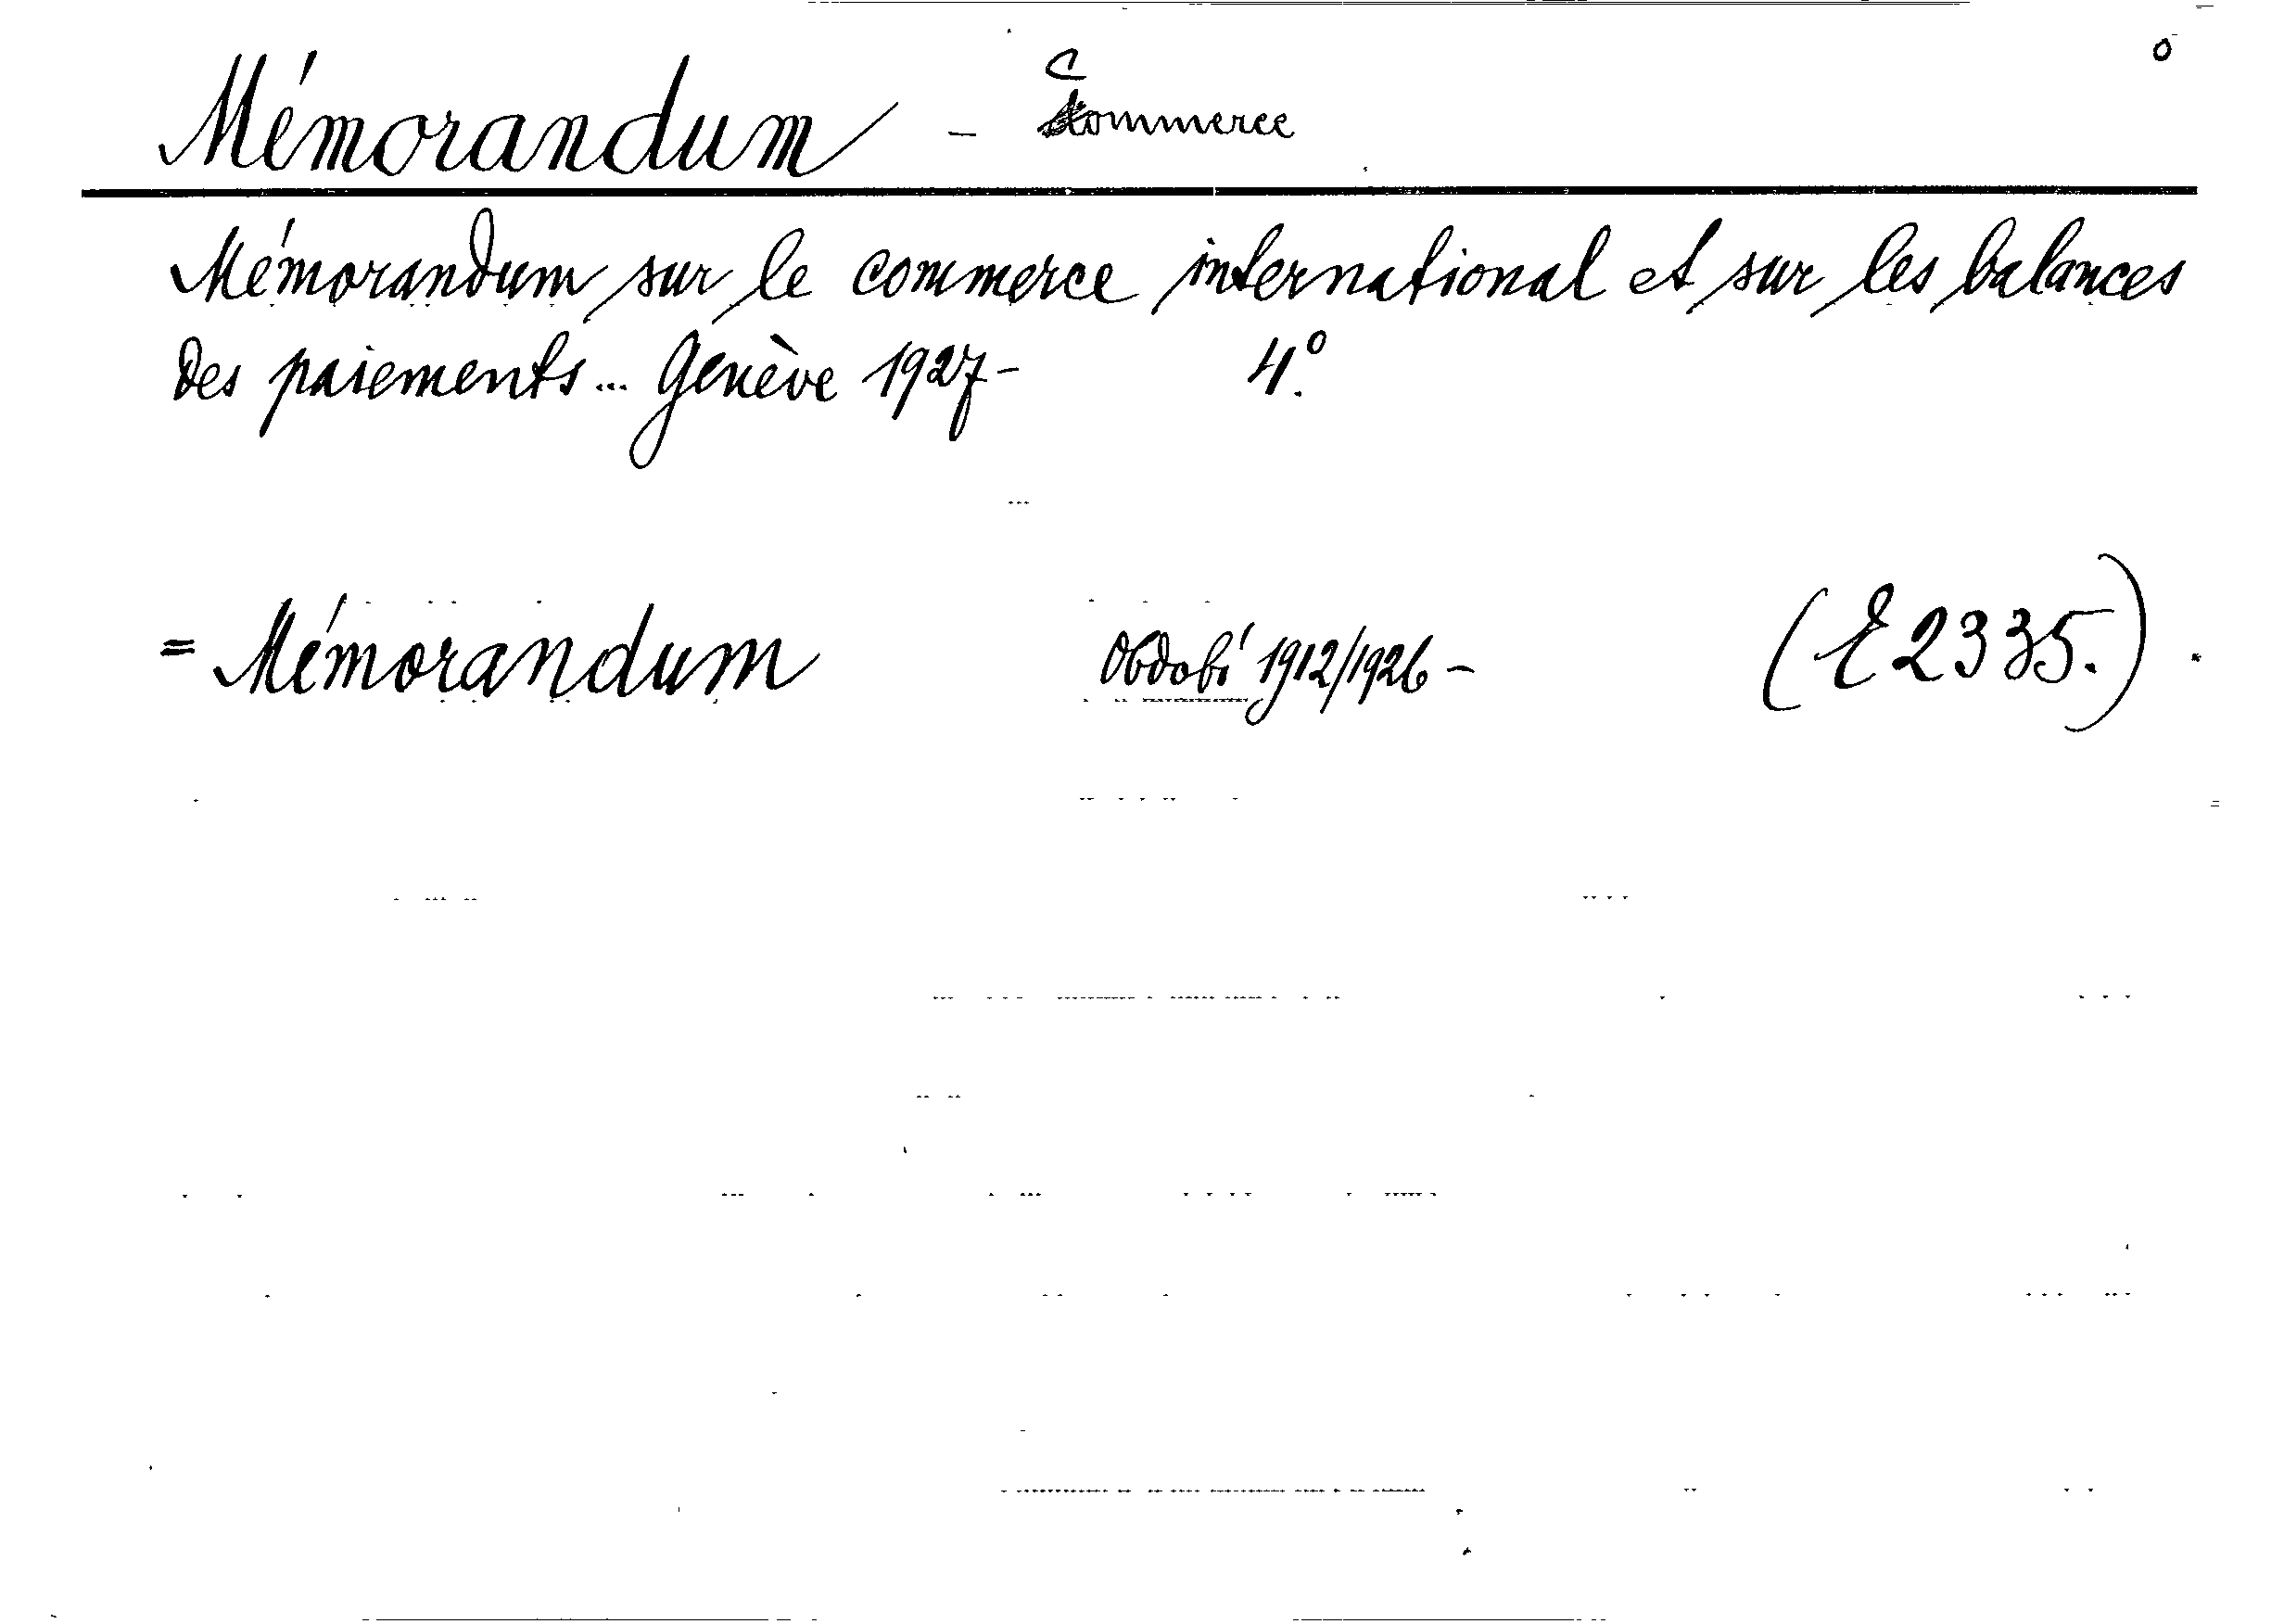 Mémorandum - Commerce
Mémorandum sur le commerce international et sur les balances
des paiements... Genève 1927- 4.°
= Mémorandum Období 1912/1926 - (E 2335.)